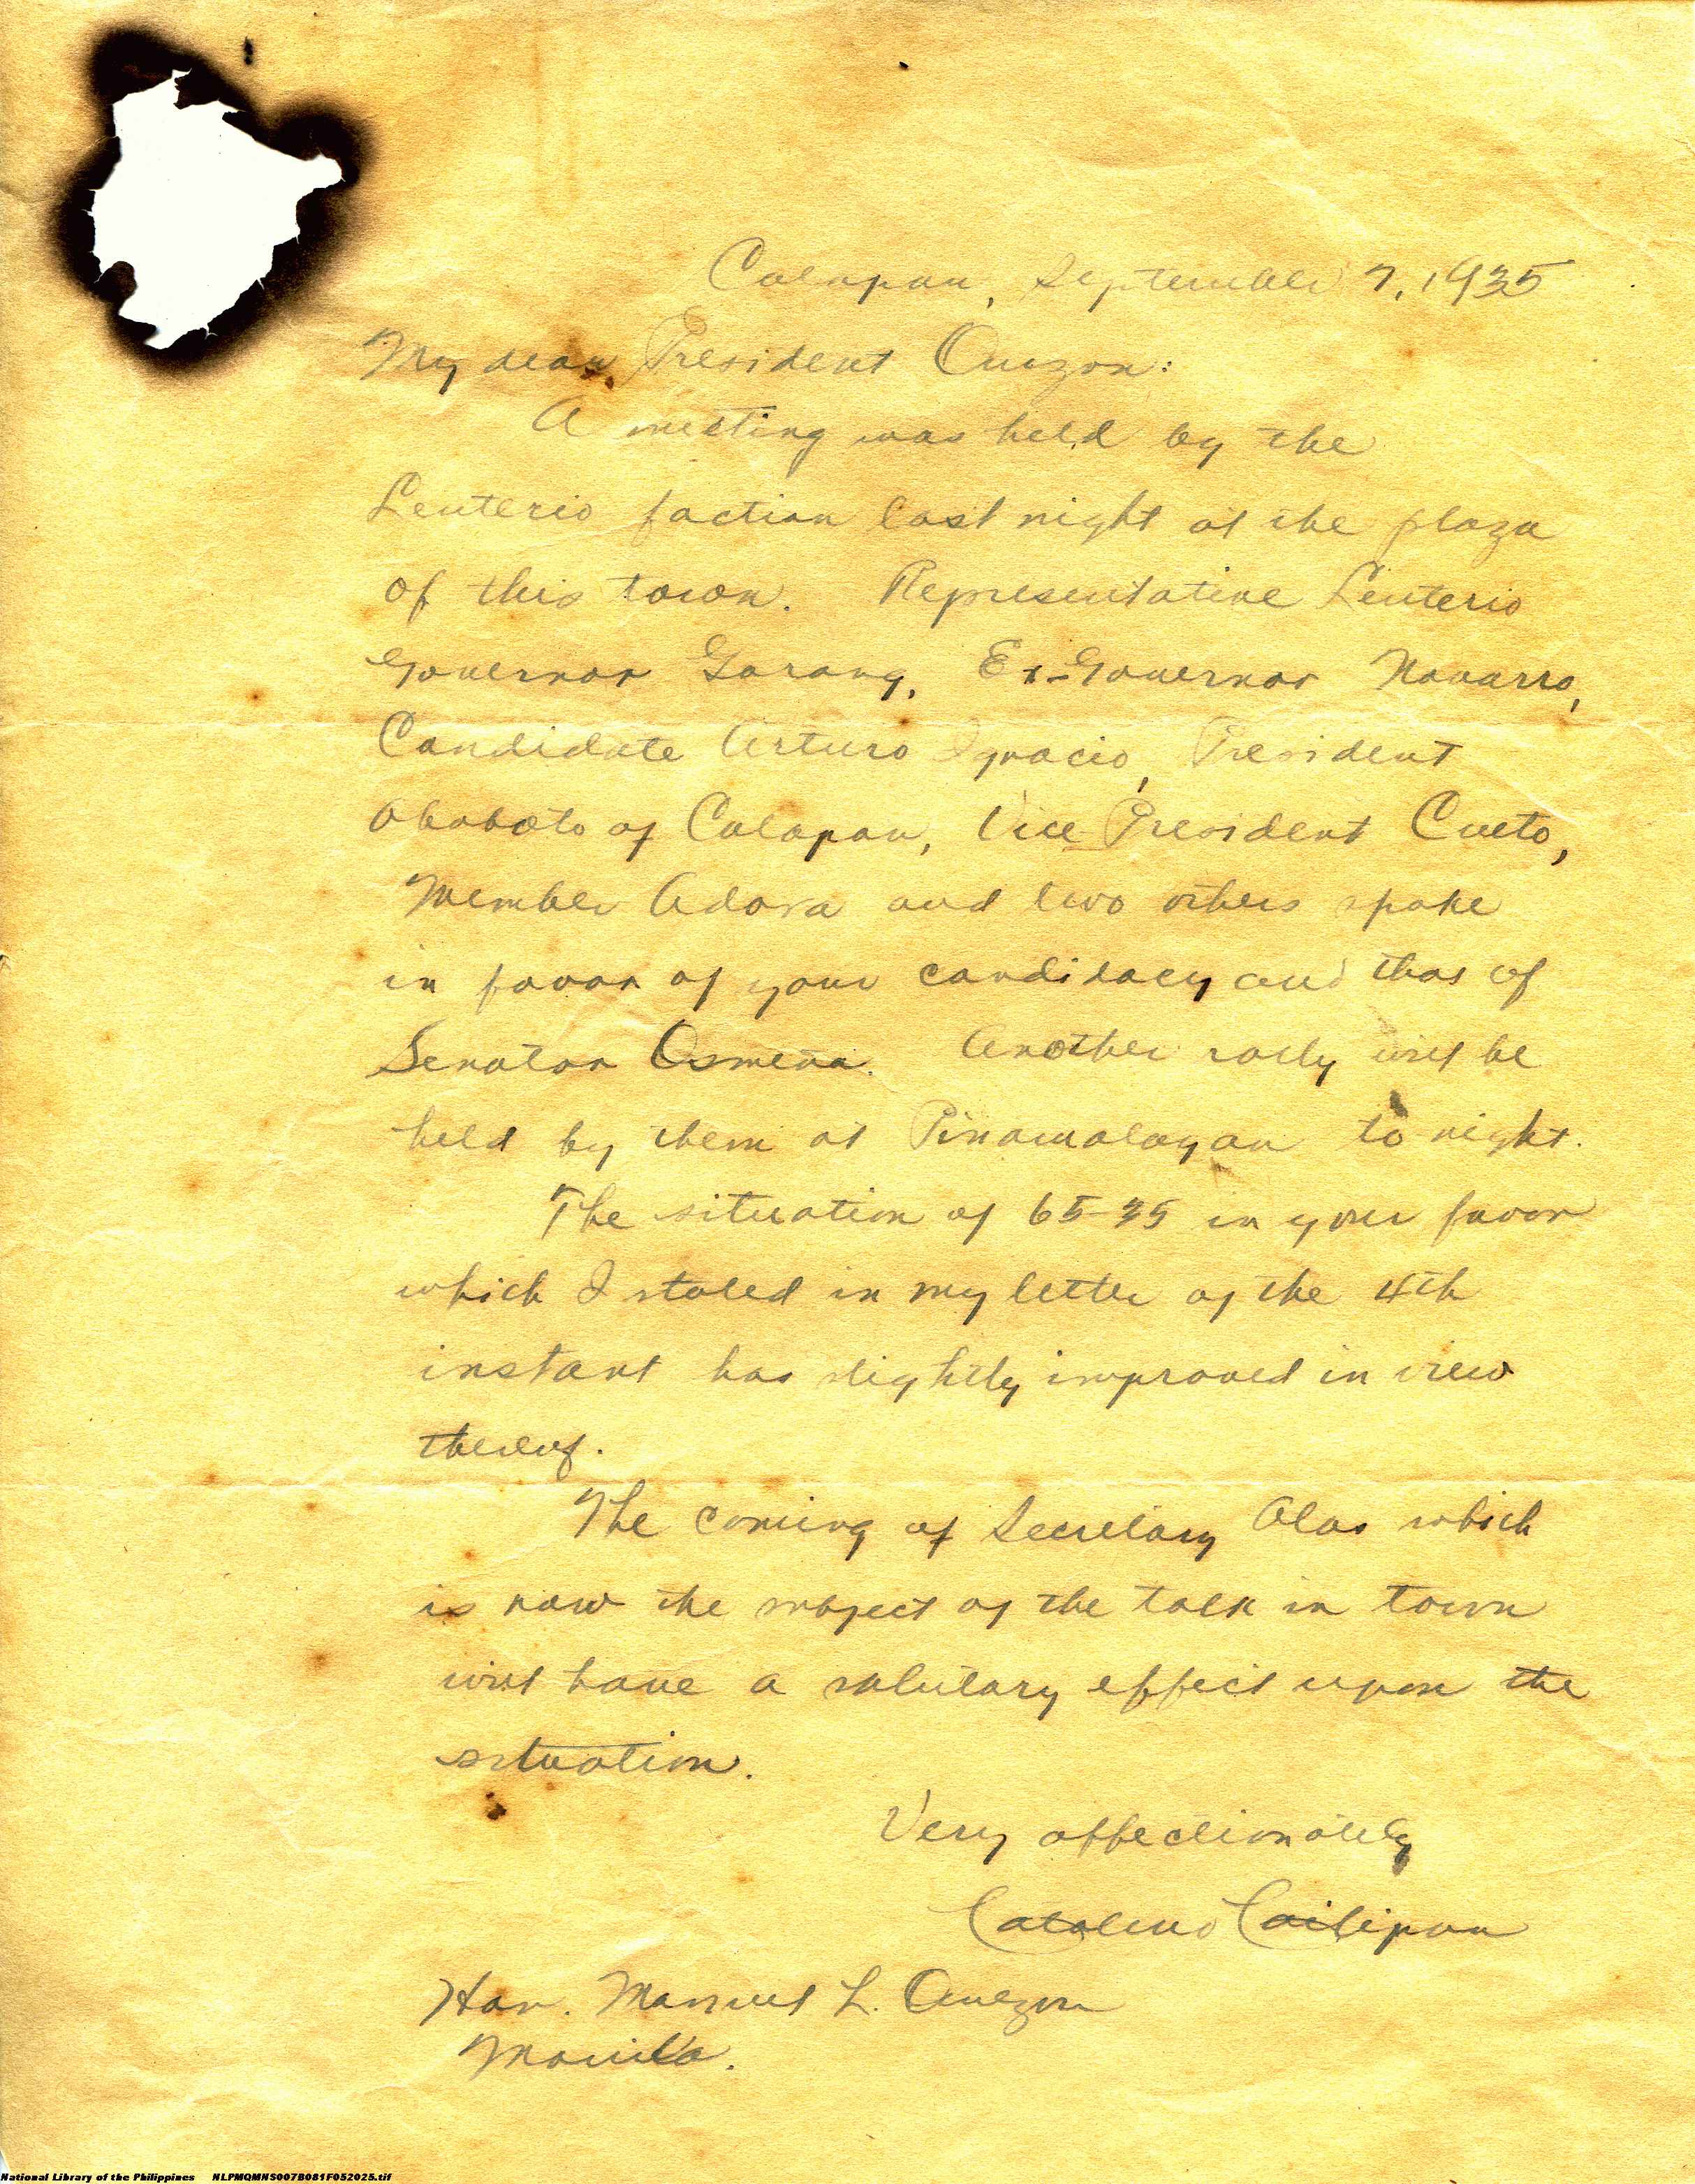 Calapan, September 7, 1935
My dear President Quezon:
A meeting was held by the
Leuterio faction last night at the plaza
of this town. Representative Leuterio
Governor Garong, Ex-Governor Navarro,
Candidate Arturo Ignacio, President
of Calapan, Vice-President Cueto,
Member Adora and two others spoke
in favor of your candidacy and that of
Senator Osmeña. Another rally will be
held by them at Pinamalayan to night.
The situation of 65-35 in your favor
which I stated in my letter of the 4th
instant has slightly improved in view
thereof.
The coming of Secretary Alas which
is now the subject of the talk in town
will have a salutary effect upon the
situation.
Very affectionately
Catalino
Hon. Manuel L. Quezon
Manila.
National Library of the Philippines NLPMQMNS007B081F052025.tif